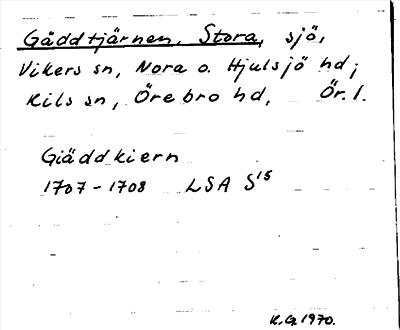 Gäddtjärnen, Stora, sjö,
Vikers sn, Nora o. Hjulsjö hd;
Kils sn, Örebro hd, Ör. l.
Giäddkiern
1707-1708 LSA S15
K.G. 1970.